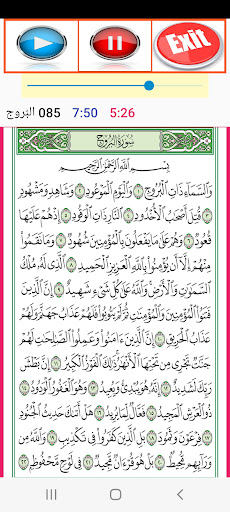 Exit
البروج 085 7:50 5:26
سورة البروج
بسم الله الرحمن الرحيم
والسماء ذات البروج ١ واليوم الموعود ٢ وشاهد ومشهود
٣ قتل أصحاب الأخدود ٤ النار ذات الوقود ٥ إذ هم عليها
قعود ٦ وهم على ما يفعلون بالمؤمنين شهود ٧ وما نقموا
منهم إلا أن يؤمنوا بالله العزيز الحميد ٨ الذي له ملك
السموات والأرض والله على كل شيء شهيد ٩ إن الذين
فتنوا المؤمنين والمؤمنات ثم لم يتوبوا فلهم عذاب جهنم ولهم
عذاب الحريق ١٠ إن الذين ءامنوا وعملوا الصالحات لهم
جنات تجري من تحتها الأنهار ذلك الفوز الكبير ١١ إن بطش
ربك لشديد ١٢ إنه هو يبدئ ويعيد ١٣ وهو الغفور الودود ١٤
ذو العرش المجيد ١٥ فعال لما يريد ١٦ هل أتاك حديث الجنود
١٧ فرعون وثمود ١٨ بل الذين كفروا في تكذيب ١٩ والله من
ورائهم محيط ٢٠ بل هو قرءان مجيد ٢١ في لوح محفوظ ٢٢